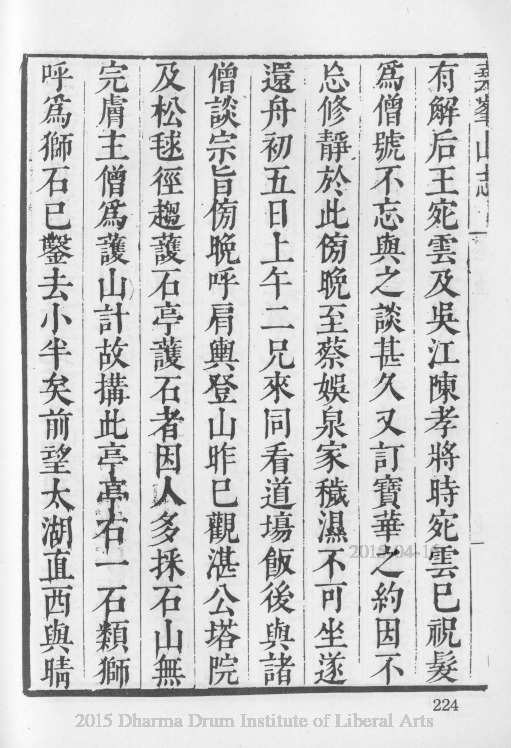 山志
有解后王宛雲及吳江陳孝將時宛雲已祝髮
爲僧號不忘與之談甚久又訂寶華之約因不
忩修靜於此傍晚至蔡娛泉家穢濕不可坐遂
還舟初五日上午二兄來同看道塲飯後與諸
僧談宗旨傍晚呼肩輿登山昨巳觀湛公塔院
及松毬徑趨護石亭護石者因人多採石山無
完膚主僧爲護山計故搆此亭亭右一石類獅
呼爲獅石已鑿去小半矣前望太湖直西與晴
2015-04-16
224
2015 Dharma Drum Institute of Liberal Arts